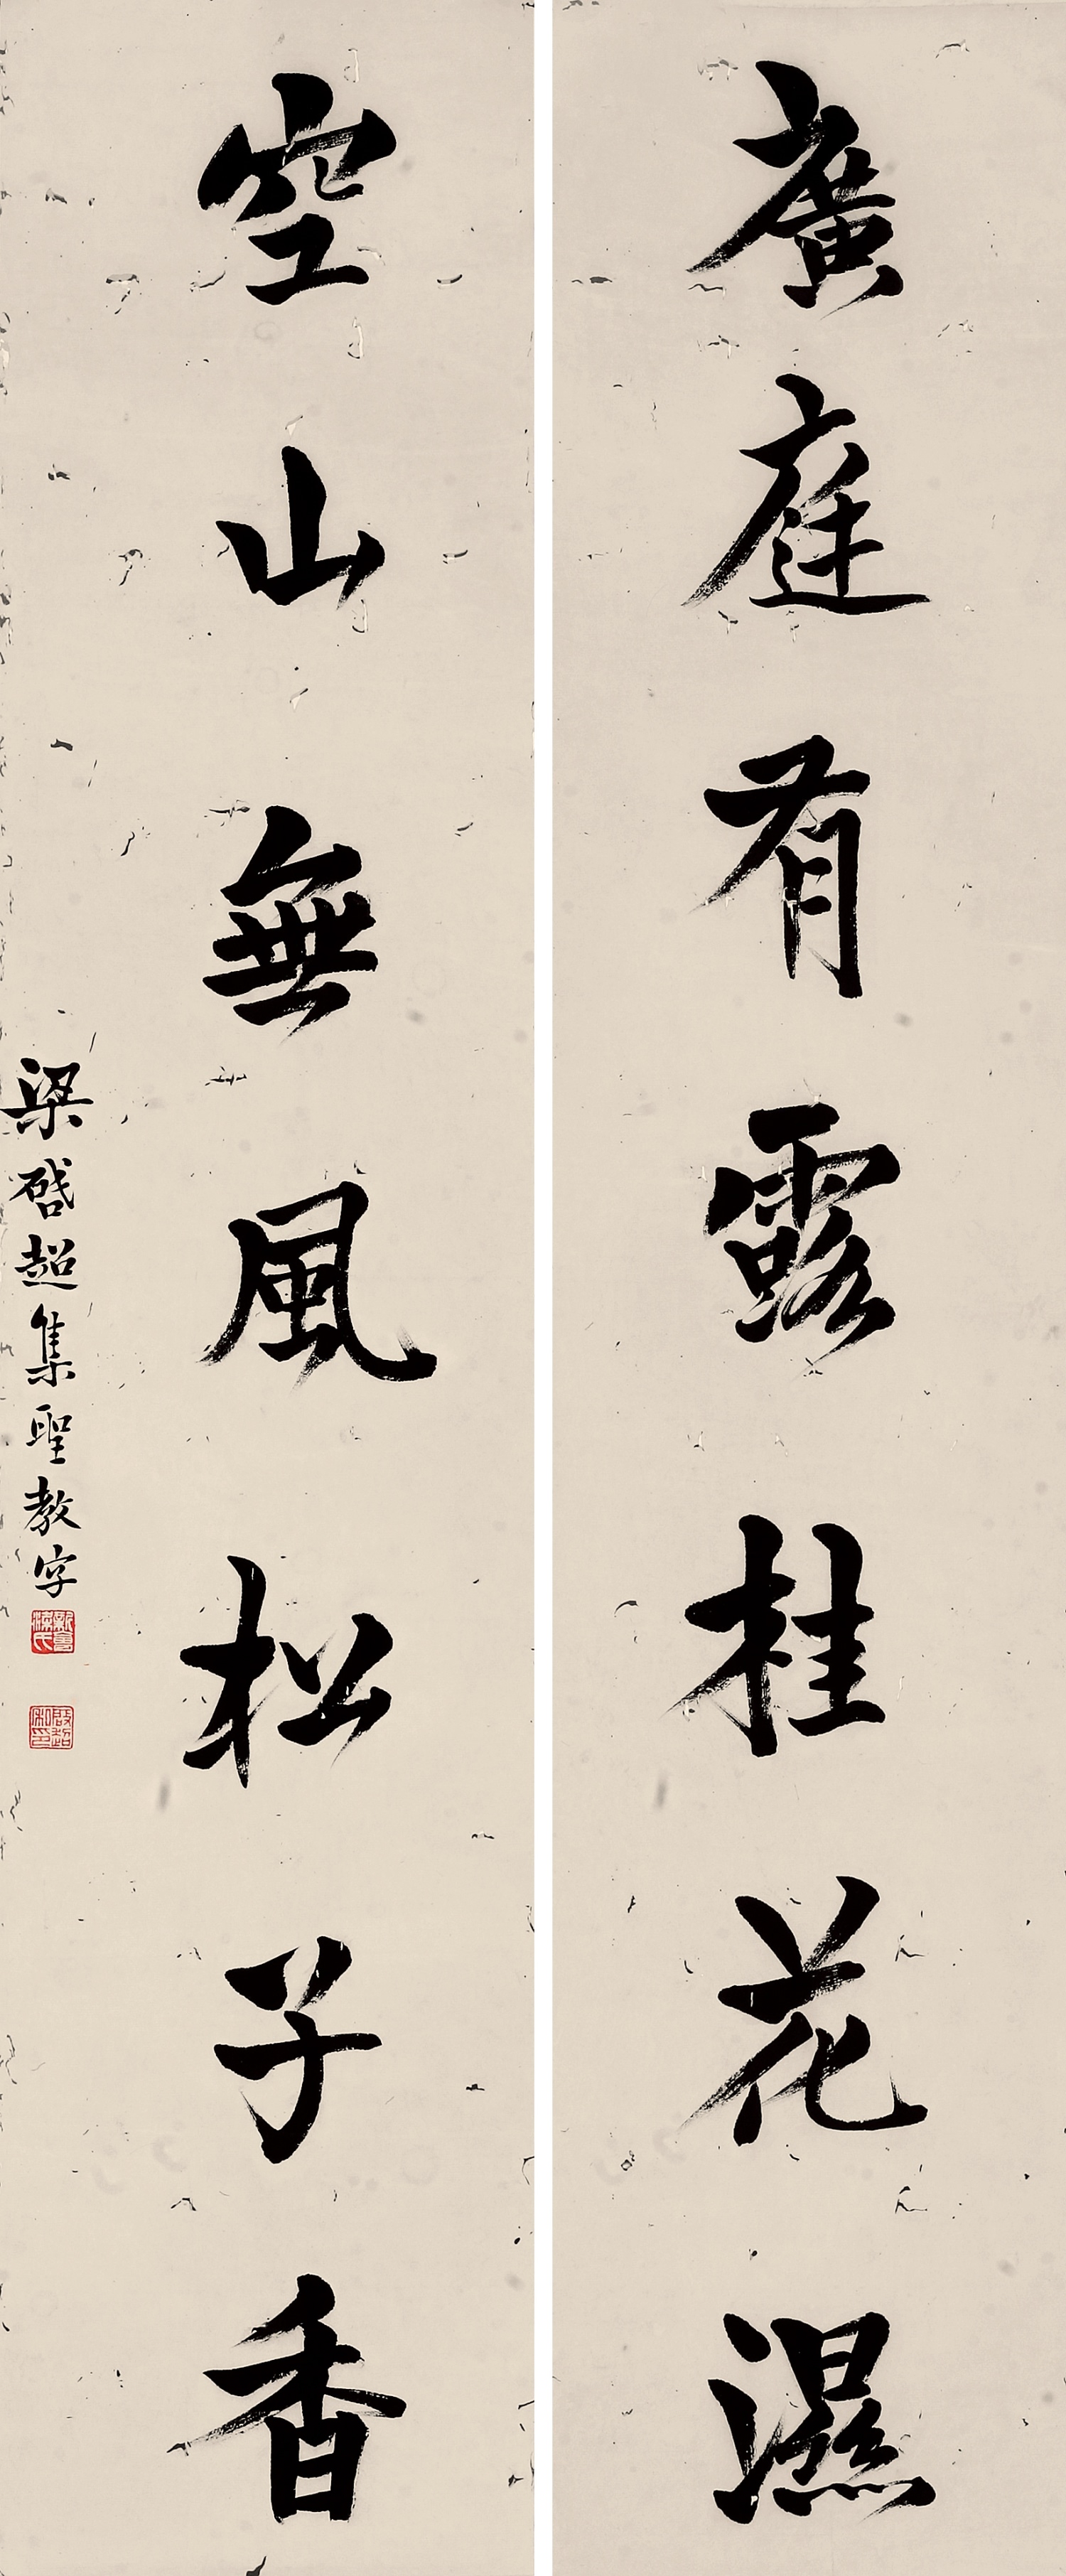 廣庭有露桂花濕
空山無風松子香
梁啓超集聖教字
新會梁氏
啓超私印